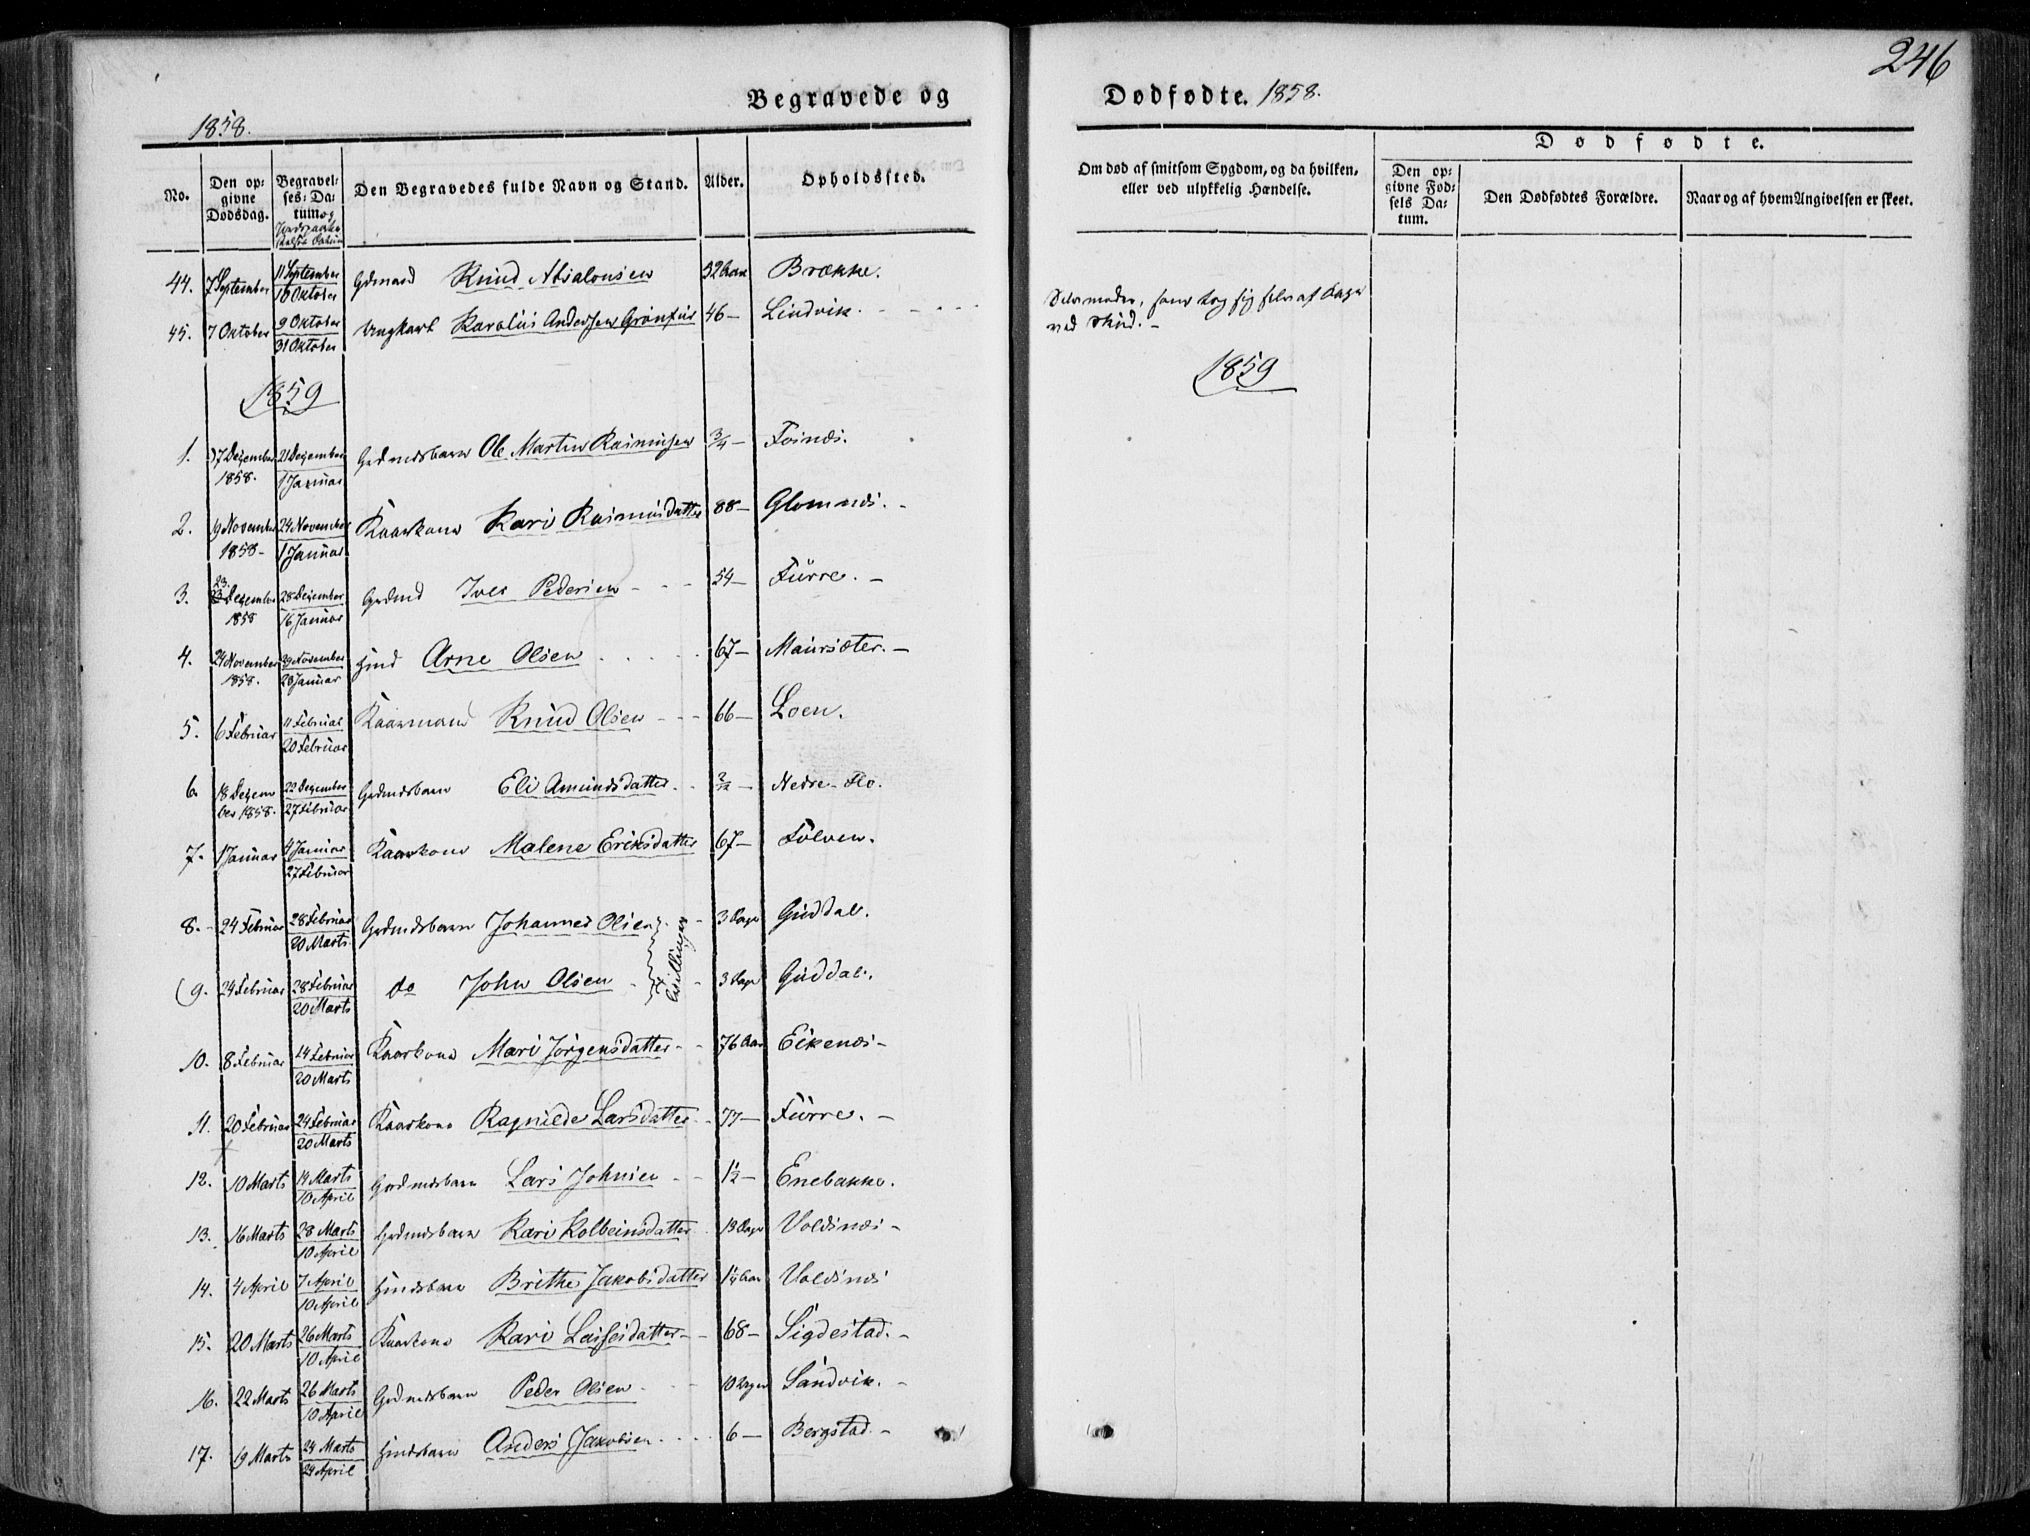 246
Begravede og Dødfødte. 1858.
1858.
No. Den opgivne Dødsdag. Begravelses-Datum og Den Begravedes fulde Navn og Stand. Alder. Opholdssted.
Om død af smitsom Sygdom, og da hvilken, eller ved ulykkelig Hændelse.
Dødfødte.
Den opgivne Fødsels Datum. Den Dødfødtes Forældre. Naar og af hvem Angivelsen er skeet.
44. 7 September 11 September 10 Oktober Gdmand Knud Absalonsen 52 Aar Brække.
45. 7 Oktober 9 Oktober 31 Oktober Ungkarl Karolus Andersen Grønfur 46 – Lindvik. – Selvmorder, som tog sig selv af Dage
ved Skud. –
1859 1859
1. 17 Dezember 1858. 21 Dezember 1 Januar Grdmdsbarn Ole Martin Rasmusen 3/4 – Tvinnes.
2. 19 November 1858 – 24 November 1 Januar Kaarkone Kari Rasmusdatter 88 – Glomnes. –
3. 23. Dezember 1858 28 Dezember 16 Januar Grdmd Iver Pedersen – 54 – Furre. –
4. 24 November 1858. 29 November 23 Januar Hmd Arne Olsen 67 – Maursæter. –
5. 6 Februar 11 Februar 20 Februar Kaarmand Knud Olsen 66 – Loen.
6. 18 Dezember 1858. 22 Dezember 27 Februar Grdmdsbarn Eli Amundsdatter 2/12 – Nedre-Flo.
7. 1 Januar 4 Januar 27 Februar Kaarkone Malene Eriksdatter 67 – Folven.
8. – 24 Februar 28 Februar 20 Marts Grdmdsbarn Johannes Olsen 3 Dage Guddal.
Tvillinger
9. 24 Februar 28 Februar 20 Marts do John Olsen 3 Dage Guddal.
10. 8 Februar 14 Februar 20 Marts Kaarkone Mari Jørgensdatter 76 Aar Eikenes –
11. 20 Februar 24 Februar 20 Marts Kaarkone Ragnilde Larsdatter 77 – Furre. –
12. 10 Marts 14 Marts 10 April Gardmdsbarn Lars Johnsen 1½ – Enebakke.
13. 16 Marts 28 Marts 10 April Grdmdsbarn Kari Kolbeinsdatter 13 Dage Voldsnes –
14. 4 April 7 April 10 April Hmdsbarn Brithe Jakobsdatter 1¼ Aar Voldsnes
15. 20 Marts 26 Marts 10 April Kaarkone Kari Lassesdatter 68 – Sigdestad. –
16. 22 Marts 26 Marts 10 April Grdmdsbarn Peder Olsen 10 Dage Sandvik. –
17. 19 Marts 24 Marts 24 April Hmdsbarn Anders Jakobsen 6 – Bergstad –